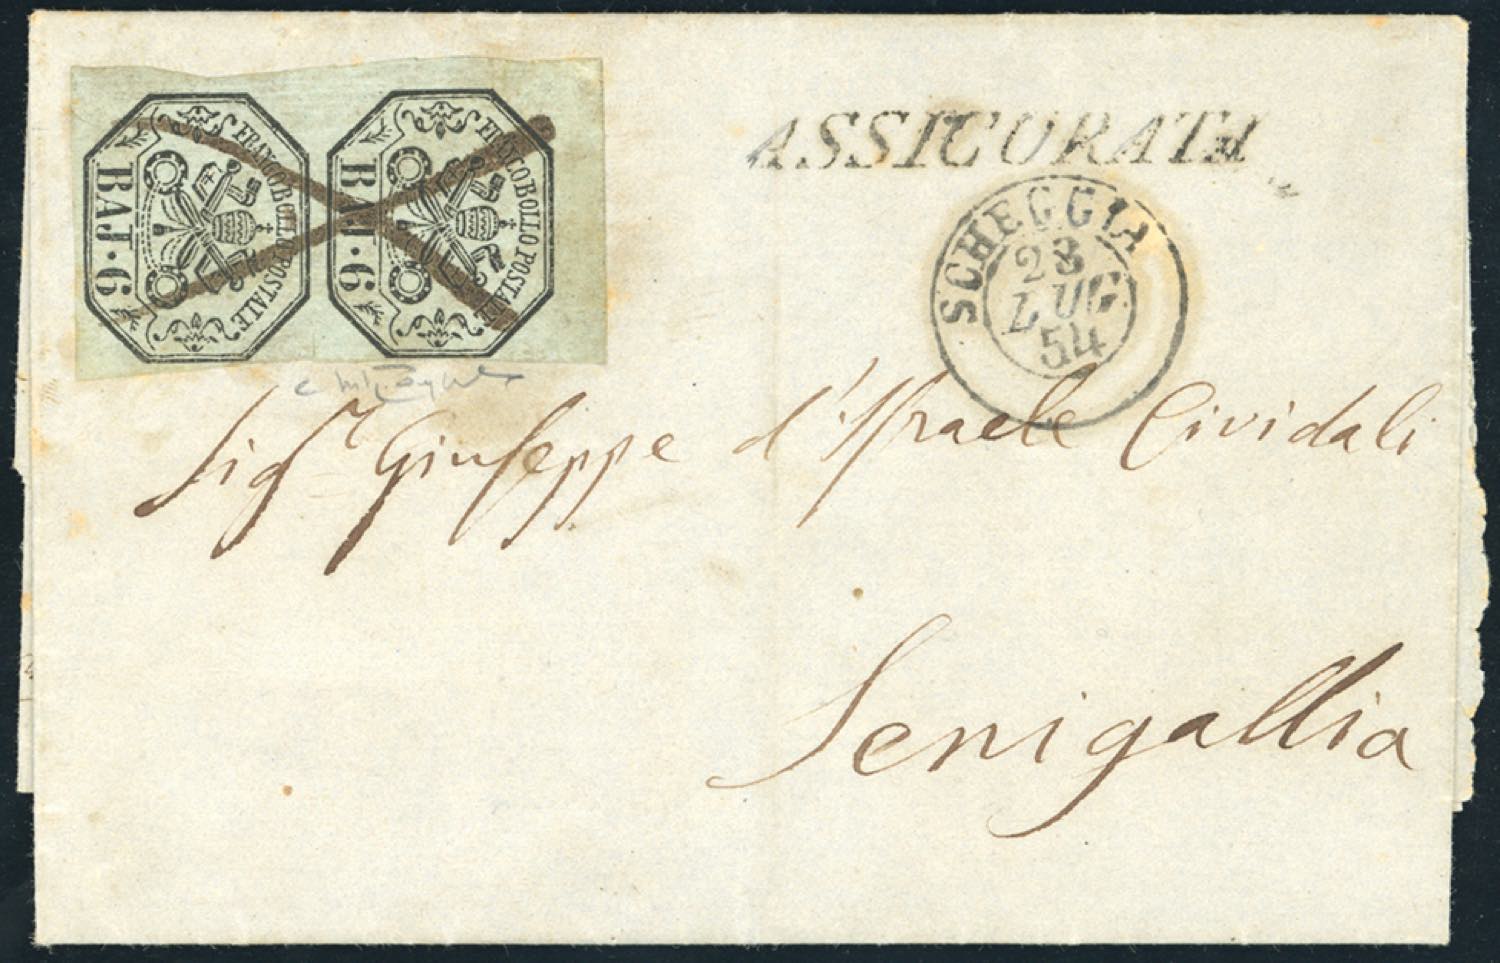 FRANCOBOLLO POSTALE
BAJ·6
FRANCOBOLLO POSTALE
BAJ·6
ASSICURATA
SCHEGGIA
23
LUG
54
Sigr Giuseppe d'Israele Cividali
Senigallia